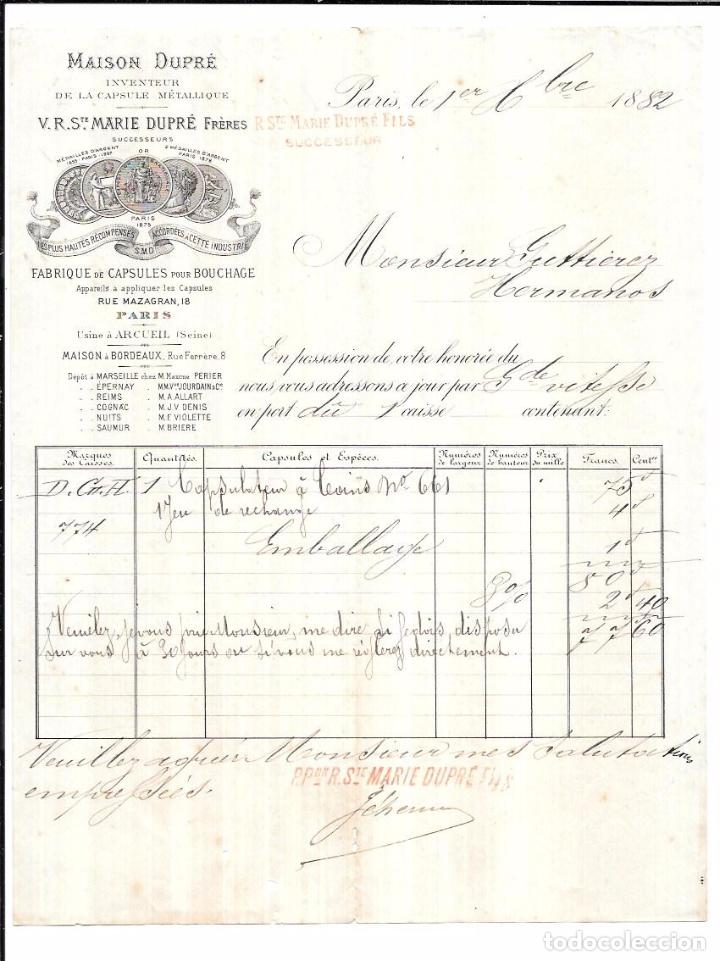 MAISON DUPRÉ
INVENTEUR
DE LA CAPSULE MÉTALLIQUE
V. R. STE MARIE DUPRÉ FRÈRES
SUCCESSEURS
MÉDAILLES D'ARGENT
PARIS
OR
2 MÉDAILLES D'ARGENT
PARIS 1878
PARIS
1875
LES PLUS HAUTES RÉCOMPENSES
ACCORDÉES A CETTE INDUSTRIE
S.M.D
FABRIQUE DE CAPSULES POUR BOUCHAGE
Appareils à appliquer les Capsules
RUE MAZAGRAN, 18
PARIS
Usine à ARCUEIL (Seine)
MAISON à BORDEAUX, Rue Ferrère, 8
Dépôt à MARSEILLE chez M. Maxime PERIER
. . ÉPERNAY . MM. Vve JOURDAIN & Cie
. . REIMS . M. A. ALLART
. . COGNAC . M. J. V. DENIS
. . NUITS . M. F. VIOLETTE
. . SAUMUR . M. BRIERE
Paris, le 1er Xbre 1882
R STE MARIE DUPRÉ FILS
SUCCESSEUR
Monsieur Guttierez
Hermanos
En possession de votre honorée du
nous vous adressons ce jour par Gde vitesse
en port dû 1 caisse contenant:
Marques des Caisses. Quantités. Capsules et Espèces. Numéros de largeur Numéros de hauteur Prix du mille Francs. Centmes
D. G. H. 1 Capsulateur à Coins No 661 75
774 1 Jeu de rechange 4
Emballage 1
80
3 % 2 40
77 60
Veuillez, je vous prie Monsieur, me dire si je dois disposer
sur vous à 30 jours ou si vous me réglerez directement.
Veuillez agréer Monsieur mes salutations
empressées.
P. PON R. STE MARIE DUPRÉ FILS
todocoleccion
todocoleccion.net